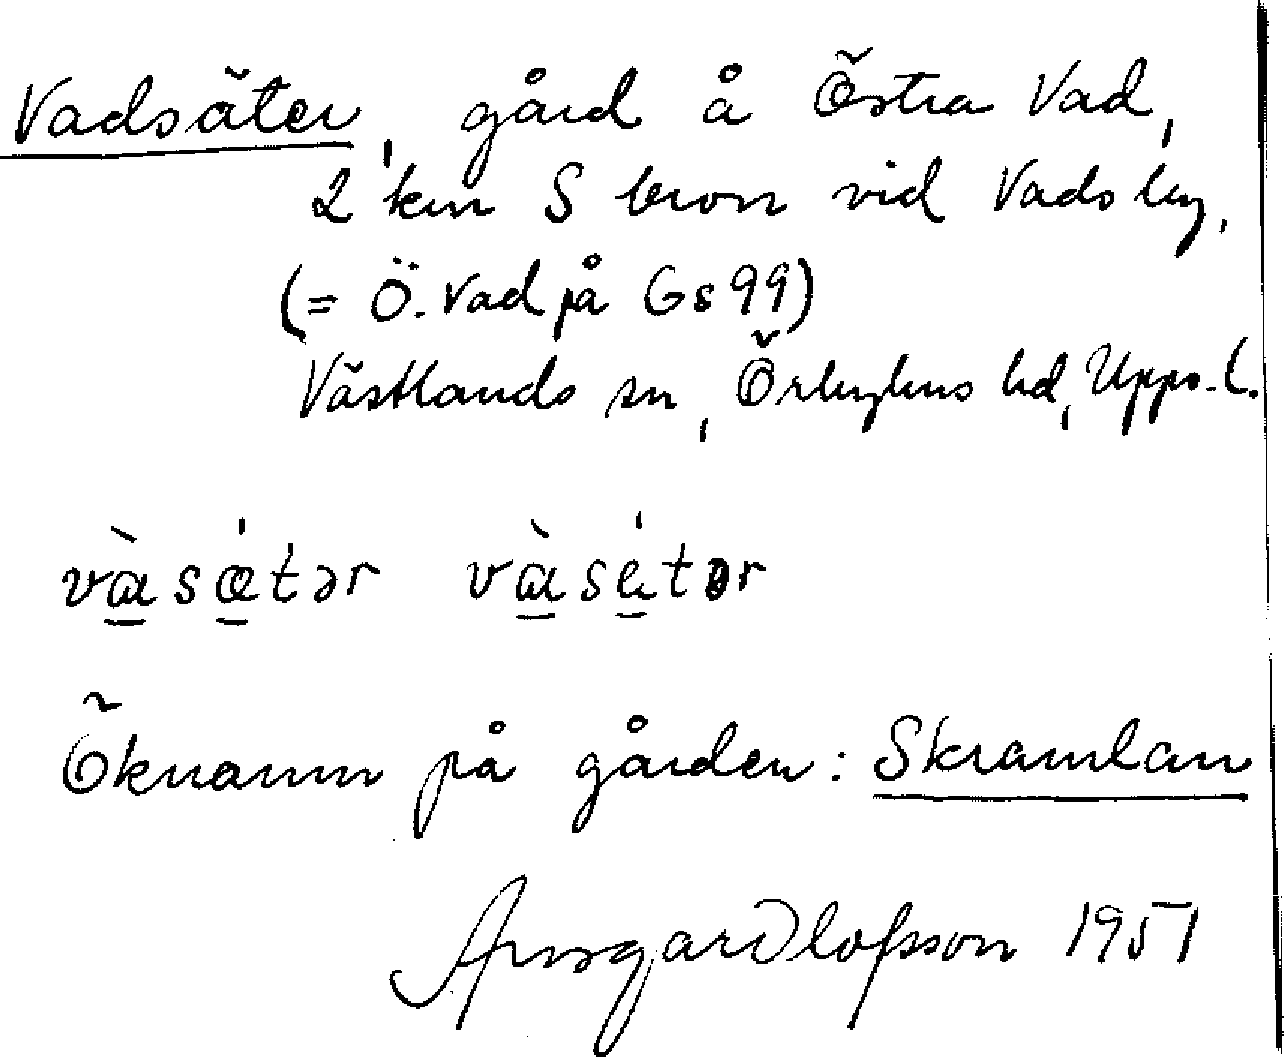 Vadsäter, gård å Östra Vad,
2 km S bron vid Vadsby,
(= Ö. Vad på Gs 99)
Västlands sn, Örbyhus hd, Upps. l.
và̱sǽ̱tər và̱sé̱tər
Öknamn på gården: Skramlan
Ansgar Olofsson 1951